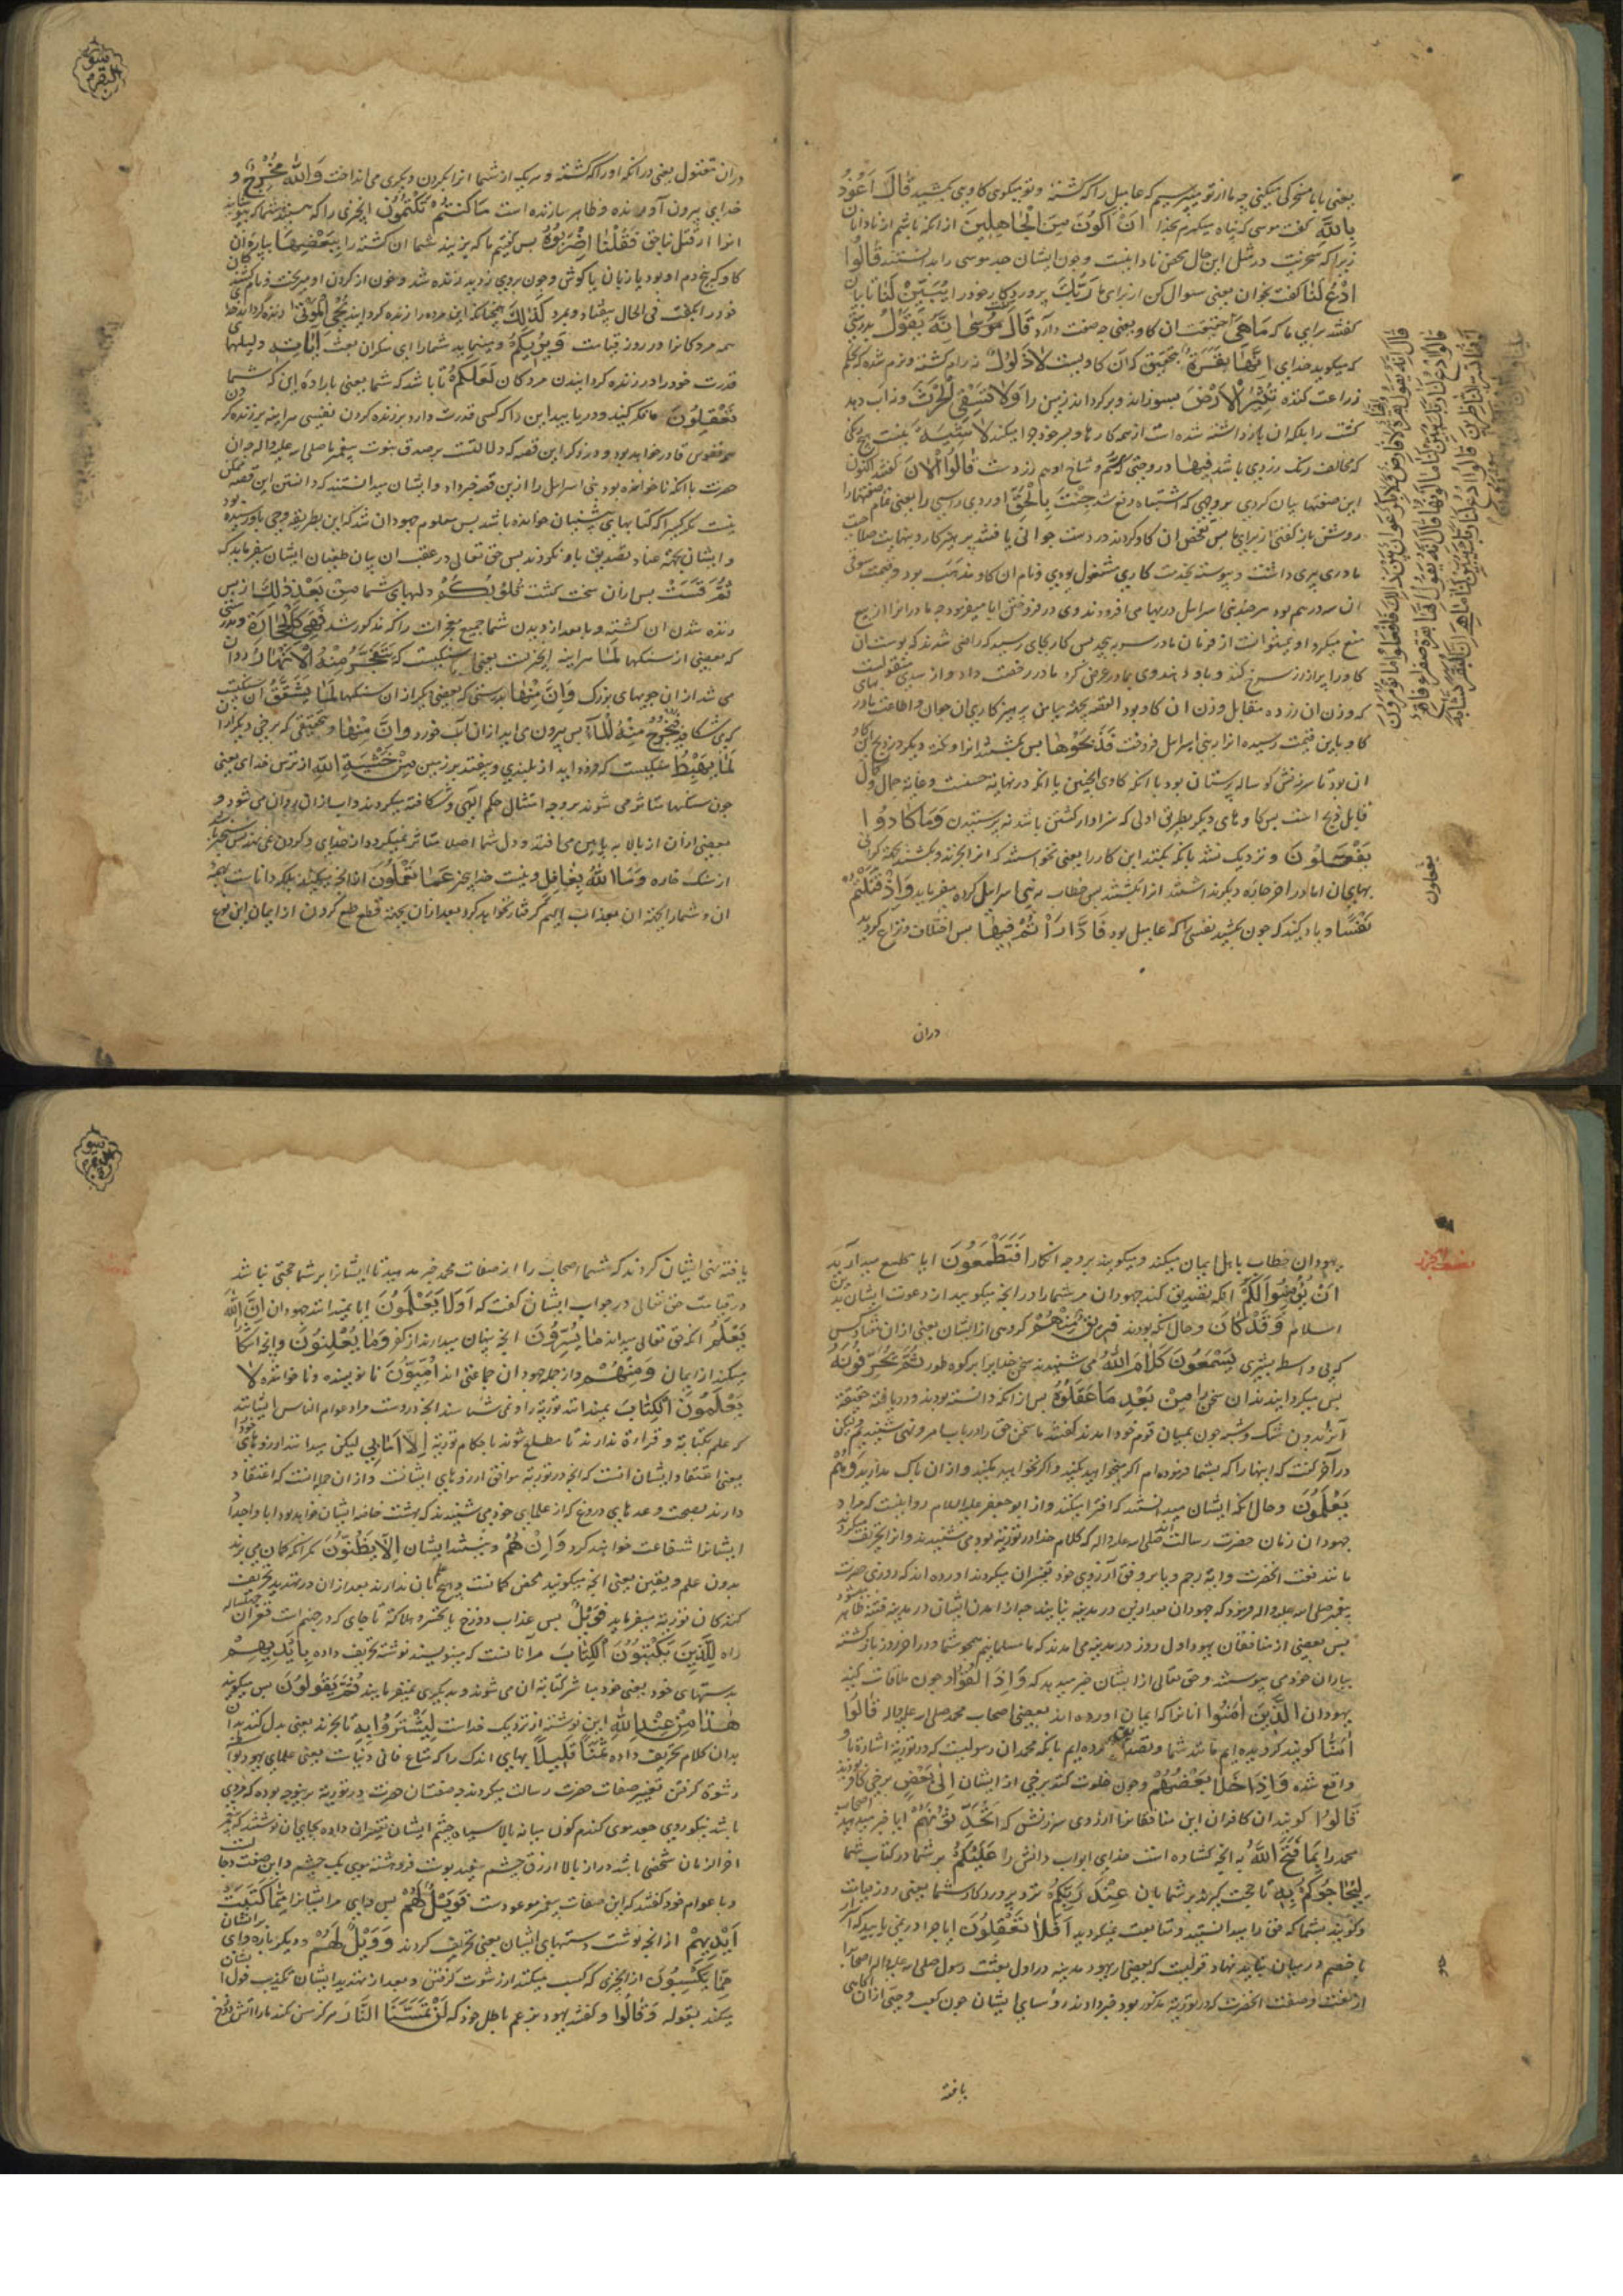 یعنی یا ما سخرکی میکنی چه ما از تو میپرسیم که عامیل را که کشته و تو میکوی کاوی بکشید قَالَ اَعُوذُ
بِاللّٰهِ کفت موسی که پناه میکیرم بخدا اَنْ اَکُونَ مِنَ الْجَاهِلِینَ از انکه باشم از نادانان
زیرا که سخریت در مثل این حال محض نادانیست و چون ایشان جد موسی را بدانستند قَالُوا
ادْعُ لَنَا کفتند بخوان یعنی سئوال کن از برای ما رَبَّكَ پروردکار خود را یُبَیِّنْ لَنَا تا بیان
کند برای ما که مَا هِیَ حقیقت ان کاو یعنی چه صفت دارد قَالَ مُوسٰی اِنَّهُ یَقُولُ بدرستی
که میکوید خدای اِنَّهَا بَقَرَةٌ بتحقیق که آن کاویست لَا ذَلُولٌ نه رام کشته و نرم شده که
زراعت کننده تُثِیرُ الْاَرْضَ بسوراند و برکرداند زمین را وَلَا تَسْقِی الْحَرْثَ و نه آب دهد
کشت را بلکه ان باز داشته شده است از همه کارها و بسر خود چرا میکند لَا شِیَةَ نیست هیچ رنکی
که مخالف رنک زردی باشد فِیهَا در وی حتی سم و شاخ او هم زردست قَالُوا الْاٰنَ کفتند اکنون
این صفتها بیان کردی بر وجهی که اشتباه رفع شد جِئْتَ بِالْحَقِّ اوردی راستی را یعنی تمام صفتهارا
روشن باز کفتی از برای ما پس تفحص ان کاو کردند در دست جوانی یافتند پرهیزکار و بنهایت صلاحیت
مادری پیری داشت و پیوسته بخدمت کاری مشغول بودی و نام ان کاو مذهب بود و قیمت
ان سه درهم بود هر چند بنی اسرایل در بها می افزودند وی در فروختن ابا مینمود چه مادر او را از بیع
منع میکرد او نمیتوانست از فرمان مادر سرپیچد پس کار بجای رسید که راضی شدند که پوست ان
کاو را پر از زر سرخ کنند و باو دهند وی بمادر عرض کرد مادر رخصت داد و از سدی منقولست
که وزن ان زر ده مقابل وزن ان کاو بود القصه بجهة یمن پرهیزکاری ان جوان و اطاعت مادر بهای
کاو باین قیمت رسیده انرا به بنی اسرایل فروخت فَذَبَحُوهَا پس بکشتند انرا و نکته دیکر در ذبح این کاو
ان بود تا سرزنش کوساله پرستان بود با انکه کاوی اینچنین با انکه در نهایة حسنت و غایة جمال و کمال
قابل ذبح است پس کاوهای دیکر بطریق اولی که سزاوار کشتن باشد نه پرستیدن وَمَا کَادُوا
یَفْعَلُونَ و نزدیک نشد بانکه بکنند این کار را یعنی نمیخواستند که انرا بخرند و بکشند بجهة کرانی
بهای ان اما در اخر چاره دیکر نداشتند انرا بکشتند پس خطاب به بنی اسرایل کرده میفرماید وَاِذْ قَتَلْتُمْ
نَفْسًا و یاد کنید که چون بکشتید نفسی را که عامیل بود فَادَّارَاْتُمْ فِیهَا پس اختلاف و نزاع کردید
دران
یفعلون
سورة البقره
دران مقتول یعنی در انکه او را که کشته و هر یک از شما انرا بکردن دیکری می انداخت وَاللّٰهُ مُخْرِجٌ و
خدای بیرون آورنده و ظاهر سازنده است مَا کُنْتُمْ تَکْتُمُونَ انچیزی را که هستید شما که میپوشید
انرا از قتل ناحق فَقُلْنَا اضْرِبُوهُ پس کفتیم ما که بزنید شما ان کشته را بِبَعْضِهَا بپاره ان
کاو که بیخ دم او بود یا زبان یا کوش و چون بروی زدید زنده شد و خون از کردن او میریخت و نام کشنده
خود را بکفت فی الحال بیفتاد و بمرد کَذٰلِكَ همچنانکه این مرده را زنده کرد اینچنین یُحْیِ الْمَوْتٰی زنده کرداند خدای
همه مردکانرا در روز قیامت وَیُرِیکُمْ و مینماید شما را ای منکران بعث اٰیَاتِهِ دلیلهای
قدرت خود را در زنده کردانیدن مردکان لَعَلَّکُمْ تا باشد که شما یعنی باراده این که شما
تَعْقِلُونَ تفکر کنید و دریابید این را که کسی قدرت دارد بر زنده کردن نفسی هراینه بر زنده کردن
همه نفوس قادر خواهد بود و در ذکر این قصه که دلالتست بر صدق نبوت پیغمبر ما صلی الله علیه واله چه ان
حضرت با انکه ناخوانده بود بنی اسرایل را ازین قصه خبر داد و ایشان میدانستند که دانستن این قصه ممکن
نیست مکر کسی را که کتابهای پیشینیان خوانده باشد پس معلوم جهودان شد که این بطریق وحی باو رسیده بود
و ایشان بجهة عناد تصدیق باو نکردند پس حق تعالی در عقب ان بیان طغیان ایشان میفرماید که
ثُمَّ قَسَتْ پس ازان سخت کشت قُلُوبُکُمْ دلهای شما مِنْ بَعْدِ ذٰلِكَ از پس
زنده شدن ان کشته و یا بعد از دیدن شما جمیع معجزات را که مذکور شد فَهِیَ کَالْحِجَارَةِ
که بعضی از سنکها لَمَا هراینه انچیزیست یعنی سنکیست که یَتَفَجَّرُ مِنْهُ الْاَنْهَارُ روان
می شد از ان جویهای بزرک وَاِنَّ مِنْهَا بدرستی که بعضی دیکر از ان سنکها لَمَا یَشَّقَّقُ ان سنکیست
که می شکافد فَیَخْرُجُ مِنْهُ الْمَاءُ پس بیرون می اید از ان آب خورد وَاِنَّ مِنْهَا و بتحقیق که برخی دیکر از ان
لَمَا یَهْبِطُ سنکیست که فرود اید از بلندی و بیفتد بر زمین مِنْ خَشْیَةِ اللّٰهِ از ترس خدای یعنی
چون سنکها متاثر می شوند بر وجه امتثال حکم الهی و شکافته میکردند و اب از ان روان می شود و
بعضی ازان از بالا به پایین می افتد و دل شما اصلا متاثر نمیکردد
از سنک خاره وَمَا اللّٰهُ بِغَافِلٍ و نیست خدا بیخبر عَمَّا تَعْمَلُونَ از انچه میکنید بلکه داناست بهمه
ان و شما را بجهة ان بعذاب الیم کرفتار خواهد کرد بعد ازان بجهة قطع طمع کردن از ایمان این نوع
یهودان خطاب باهل ایمان میکند و میکوید بر وجه انکار اَفَتَطْمَعُونَ ایا طمع میدارید
اَنْ یُؤْمِنُوا لَکُمْ انکه تصدیق کنند جهودان مر شما را در انچه میکویید از دعوت ایشان بدین
اسلام وَقَدْ کَانَ و حال انکه بودند فَرِیقٌ مِنْهُمْ کروهی از ایشان یعنی از ان هفتاد کس
که بی واسطه بشری یَسْمَعُونَ کَلَامَ اللّٰهِ می شنیدند سخن خدایرا بر کوه طور ثُمَّ یُحَرِّفُونَهُ
پس میکردانیدند ان سخن را مِنْ بَعْدِ مَا عَقَلُوهُ پس از انکه دانسته بودند و دریافته حقیقة
آنرا بدون شک و شبهه چون بمیان قوم خود امدند کفتند ما سخن حق را در باب امر و نهی شنیدیم و لیکن
در آخر کفت که اینها را که بشما فرموده ام اکر میخواهید بکنید و اکر نخواهید مکنید و از ان باک مدارید وَهُمْ
یَعْلَمُونَ و حال انکه ایشان میدانستند که افترا میکنند و از ابو جعفر علیه السلام روایتست که مراد
جهودان زمان حضرت رسالت صلی الله علیه واله که کلام خدا در توریة بودی می شنیدند و انرا تحریف میکردند
مانند نعت انحضرت و ایة رجم و یا بر وفق آرزوی خود تفسیر ان میکردند اورده اند که روزی حضرت
پیغمبر صلی الله علیه واله فرمود که جهودان بعد ازین در مدینه نیایند چه از امدن ایشان در مدینه فتنه ظاهر میشود
پس بعضی از منافقان یهود اول روز در مدینه می امدند که ما مسلمانیم همچو شما و در اخر روز بازکشته
بیاران خود می پیوستند و حق تعالی از ایشان خبر میدهد که وَاِذَا لَقُوا و چون ملاقات کنند
یهودان الَّذِینَ اٰمَنُوا انانرا که ایمان اورده اند یعنی اصحاب محمد صلی الله علیه واله قَالُوا
اٰمَنَّا کویند کرویده ایم مانند شما و تصدیق کرده ایم بانکه محمد ان رسولیست که در توریة اشارة باو
واقع شده وَاِذَا خَلَا بَعْضُهُمْ و چون خلوت کنند برخی از ایشان اِلٰی بَعْضٍ برخی کافر بودند
قَالُوا کویند ان کافران این منافقانرا از روی سرزنش که اَتُحَدِّثُونَهُمْ ایا خبر میدهید اصحاب
محمد را بِمَا فَتَحَ اللّٰهُ به انچه کشاده است خدای ابواب دانش را عَلَیْکُمْ بر شما در کتاب شما
لِیُحَاجُّوکُمْ بِهِ تا حجت کیرند بر شما بان عِنْدَ رَبِّکُمْ نزد پروردکار شما یعنی روز قیامت
و کویند بشما که حق را میدانستید و متابعت نمیکردید اَفَلَا تَعْقِلُونَ ایا چرا در نمی یابید که اسرار
با خصم در میان نباید نهاد و قولیست که بعضی از یهود مدینه در اول بعثت رسول صلی الله علیه واله اصحابرا
از نعت و صفت انحضرت که در توریة مذکور بود خبر دادند رؤسای ایشان چون کعب و حیی از ان اکاهی
یافته
یافته نهی ایشان کردند که شما اصحاب را از صفات محمد خبر مدهید تا ایشانرا بر شما حجتی نباشد
در قیامت حق تعالی در جواب ایشان کفت که اَوَلَا یَعْلَمُونَ ایا نمیدانند جهودان اِنَّ اللّٰهَ
یَعْلَمُ انکه حق تعالی میداند مَا یُسِرُّونَ انچه پنهان میدارند از کفر وَمَا یُعْلِنُونَ و انچه اشکارا
میکنند از ایمان وَمِنْهُمْ و از جمله جهودان جماعتی اند اُمِّیُّونَ نانویسنده و ناخوانده لَا
یَعْلَمُونَ الْکِتَابَ نمیدانند توریة را و نمی شناسند انچه دروست مراد عوام الناس ایشانند
که علم بکتابة و قراءة ندارند تا مطلع شوند باحکام توریة اِلَّا اَمَانِیَّ لیکن میدانند ارزوهای خود را
یعنی اعتقاد ایشان انست که انچه در توریة موافق ارزوهای ایشانست و از ان جمله انست که اعتقاد
دارند بصحت وعدهای دروغ که از علمای خود می شنیدند که بهشت خاصه ایشان خواهد بود و ابا و اجداد
ایشانرا شفاعت خواهند کرد وَاِنْ هُمْ و نیستند ایشان اِلَّا یَظُنُّونَ مکر انکه کمان می برند
بدون علم و یقین یعنی انچه میکویند محض کمانست و هیچ علم بان ندارند بعد ازان در تهدید تحریف
کنندکان توریة میفرماید فَوَیْلٌ پس عذاب دوزخ یا تحسر و هلاکة یا جای که در جهنم است قعر ان چهل ساله
راه لِلَّذِینَ یَکْتُبُونَ الْکِتَابَ مر آنانست که مینویسند نوشته تحریف داده بِاَیْدِیهِمْ
بدستهای خود یعنی خود مباشر کتابة ان می شوند و بدیکری نمیفرمایند ثُمَّ یَقُولُونَ پس میکویند
هٰذَا مِنْ عِنْدِ اللّٰهِ این نوشته از نزدیک خداست لِیَشْتَرُوا بِهِ تا بخرند یعنی بدل کنند
بدان کلام تحریف داده ثَمَنًا قَلِیلًا بهای اندک را که متاع فانی دنیاست یعنی علمای یهود بواسطه
رشوة کرفتن تغییر صفات حضرت رسالت میکردند چه صفت ان حضرت در توریة برینوجه بوده که مردی
باشد نیکو روی جعد موی کندم کون میانه بالا سیاه چشم ایشان تغییر ان داده بجای ان نوشتند که پیغمبر
اخر الزمان شخصی باشد دراز بالا ازرق چشم سفید پوست فروهشته موی یک چشم و این صفت دجالست
و با عوام خود کفتند که این صفات پیغمبر موعودست فَوَیْلٌ لَهُمْ پس وای مر ایشانرا مِمَّا کَتَبَتْ
اَیْدِیهِمْ از انچه نوشت دستهای ایشان یعنی تحریف کردند وَوَیْلٌ لَهُمْ و دیکر باره وای بر ایشان
مِمَّا یَکْسِبُونَ از انچیزی که کسب میکنند از رشوت کرفتن و بعد از تهدید ایشان تکذیب قول ایشان
میکند بقوله وَقَالُوا و کفتند یهود بزعم باطل خود که لَنْ تَمَسَّنَا النَّارُ هرکز مس نکند ما را آتش دوزخ